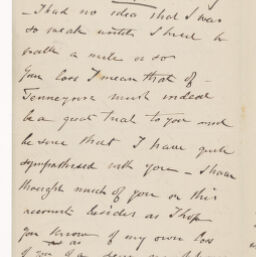 - I had no idea that I was
so weak until I tried to
walk a mile or so
Your loss I mean that of -
Tennyson must indeed
be a great trial to you and
be sure that I have quite
sympathised with you - I have
thought much of you on this
account besides as I hope
you know of my own loss
as
of you